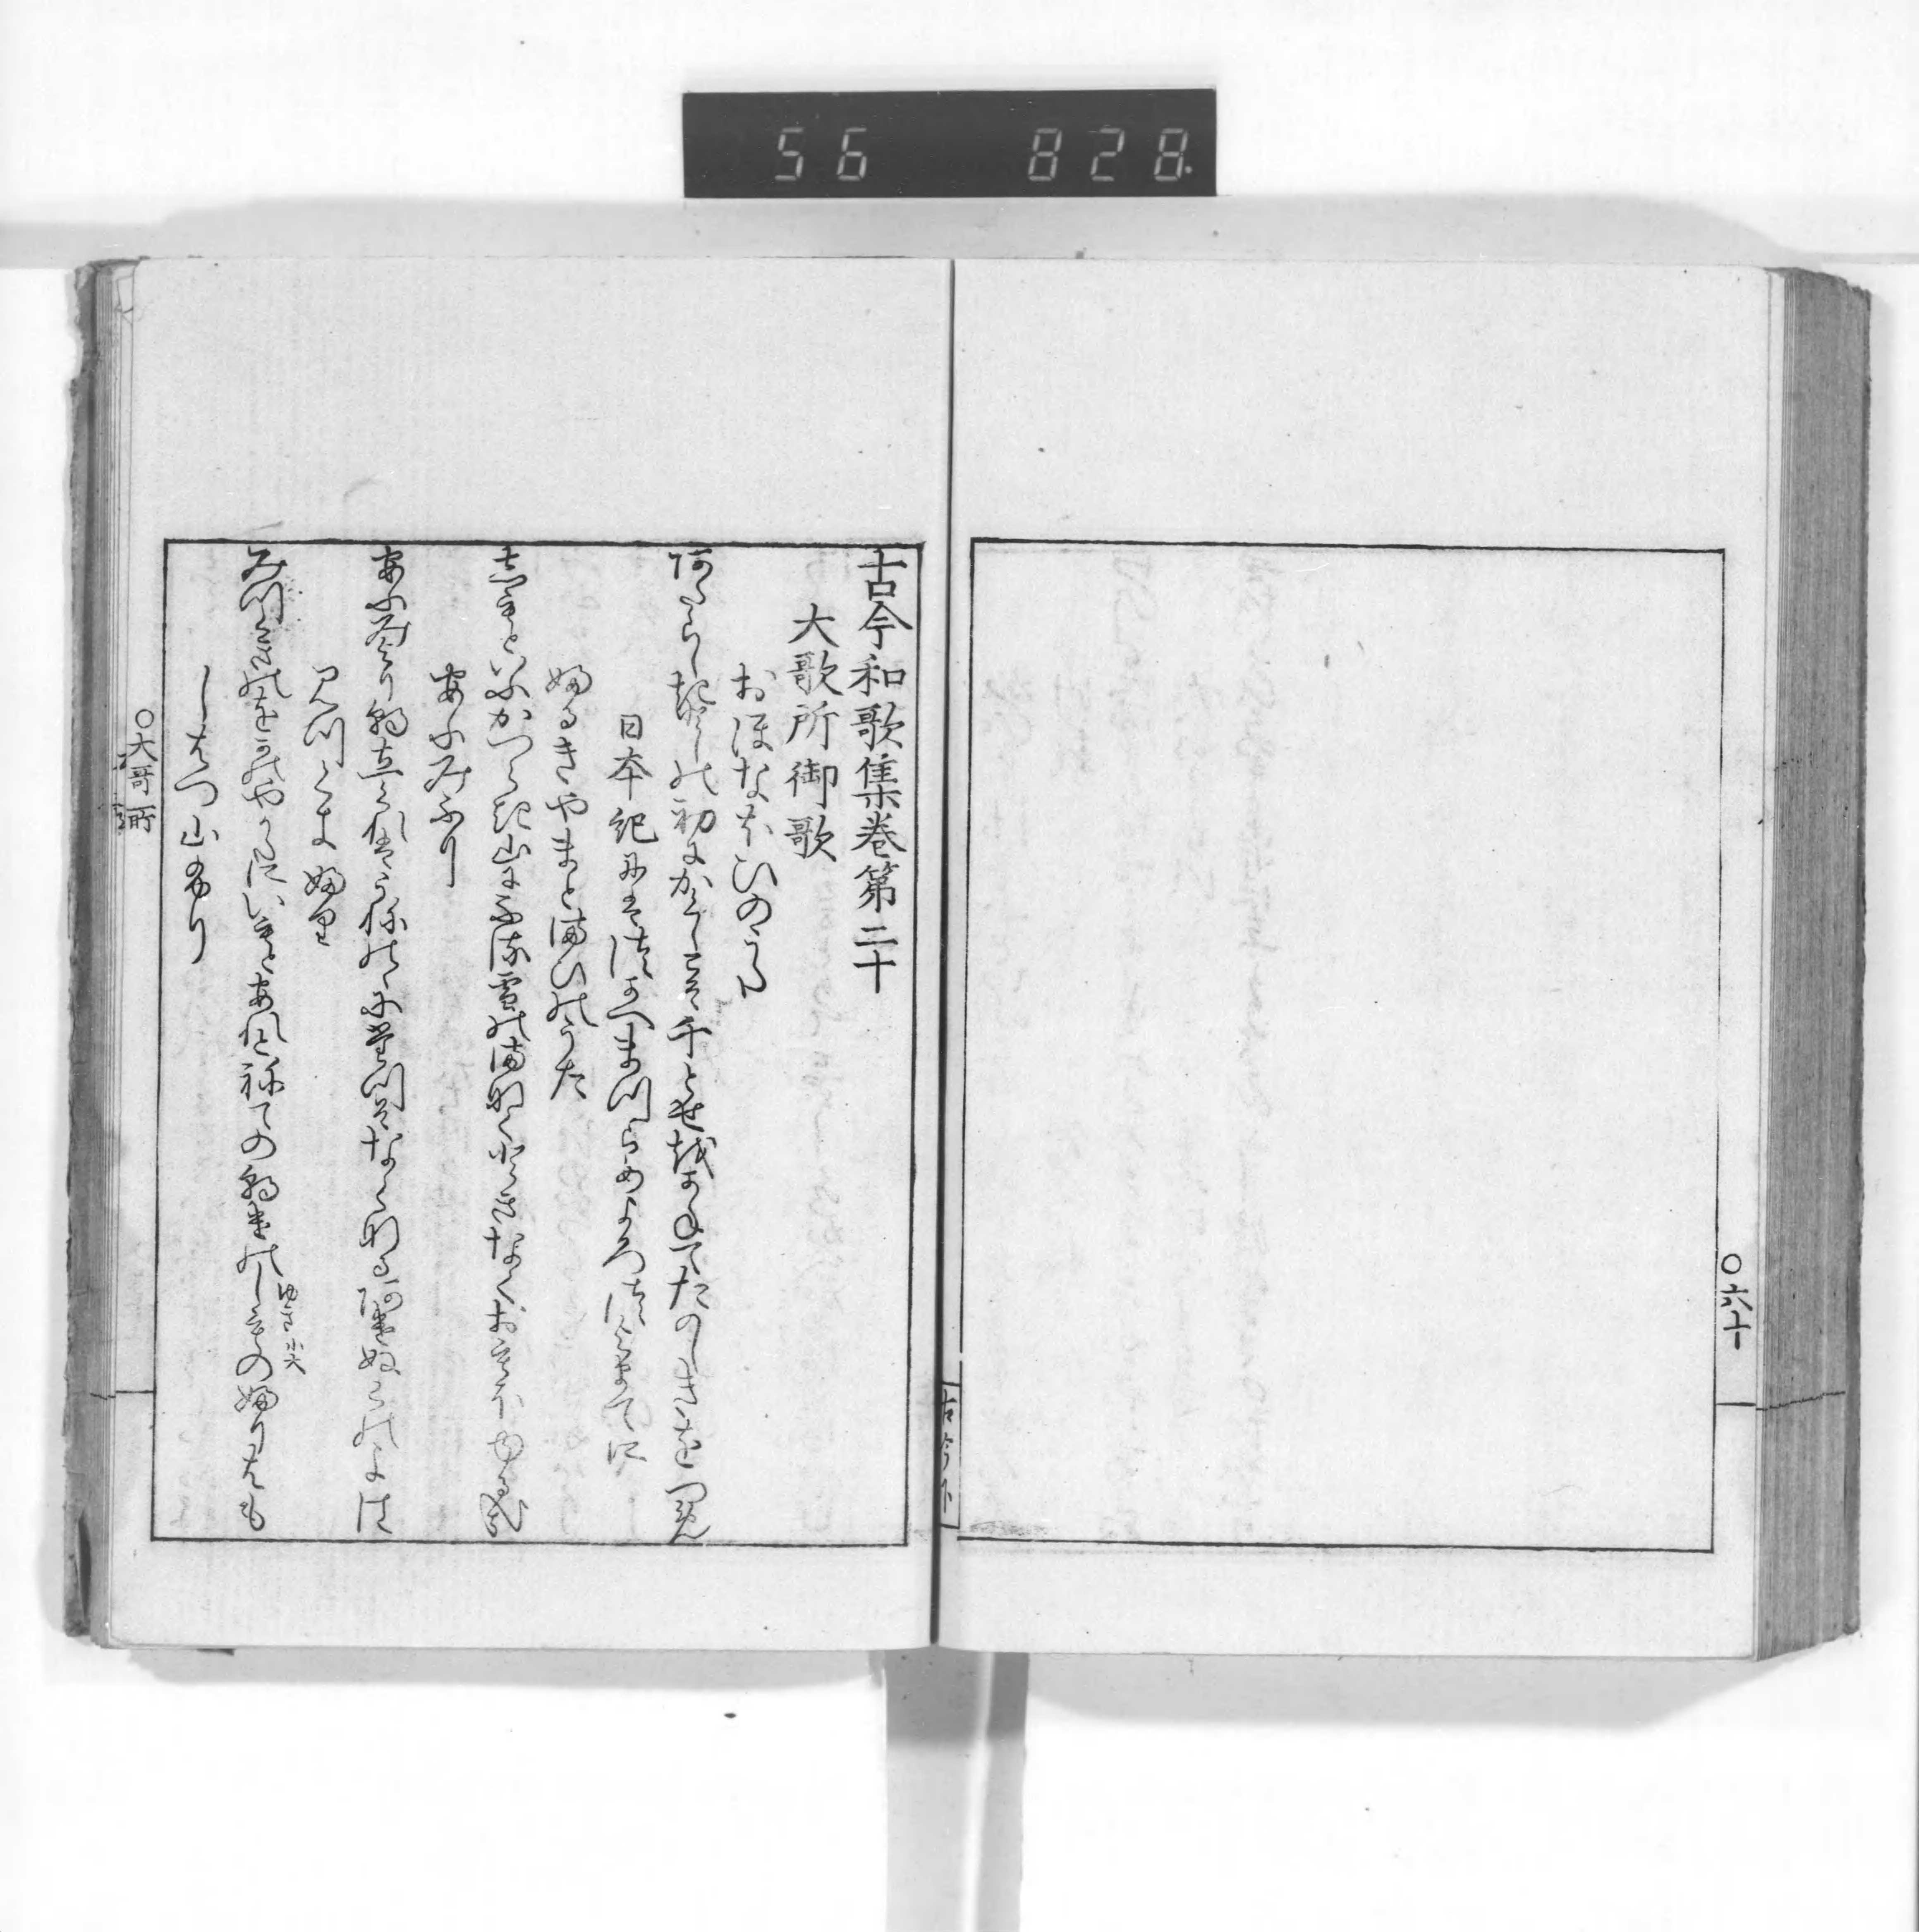 56 828
古今和歌集巻第二十
大歌所御歌
おほなほひのうた
阿たらしき年の初にかくしこそ千とせをかねてたのしきをつめ
日本紀にはつかへまつらめよろつよまてに
ふるきやまとまひのうた
しもとゆふかつらき山にふる雪のまなく時なくおもほゆるかな
あふみふり
あふみより朝立くれはうねのゝにたつそなくなる阿けぬこのよは
みつくきふり
みつくきのをかのやかたにいもとあれとねての朝けのしものふりはも
しはつ山ふり
○大哥所
○六十
古今下